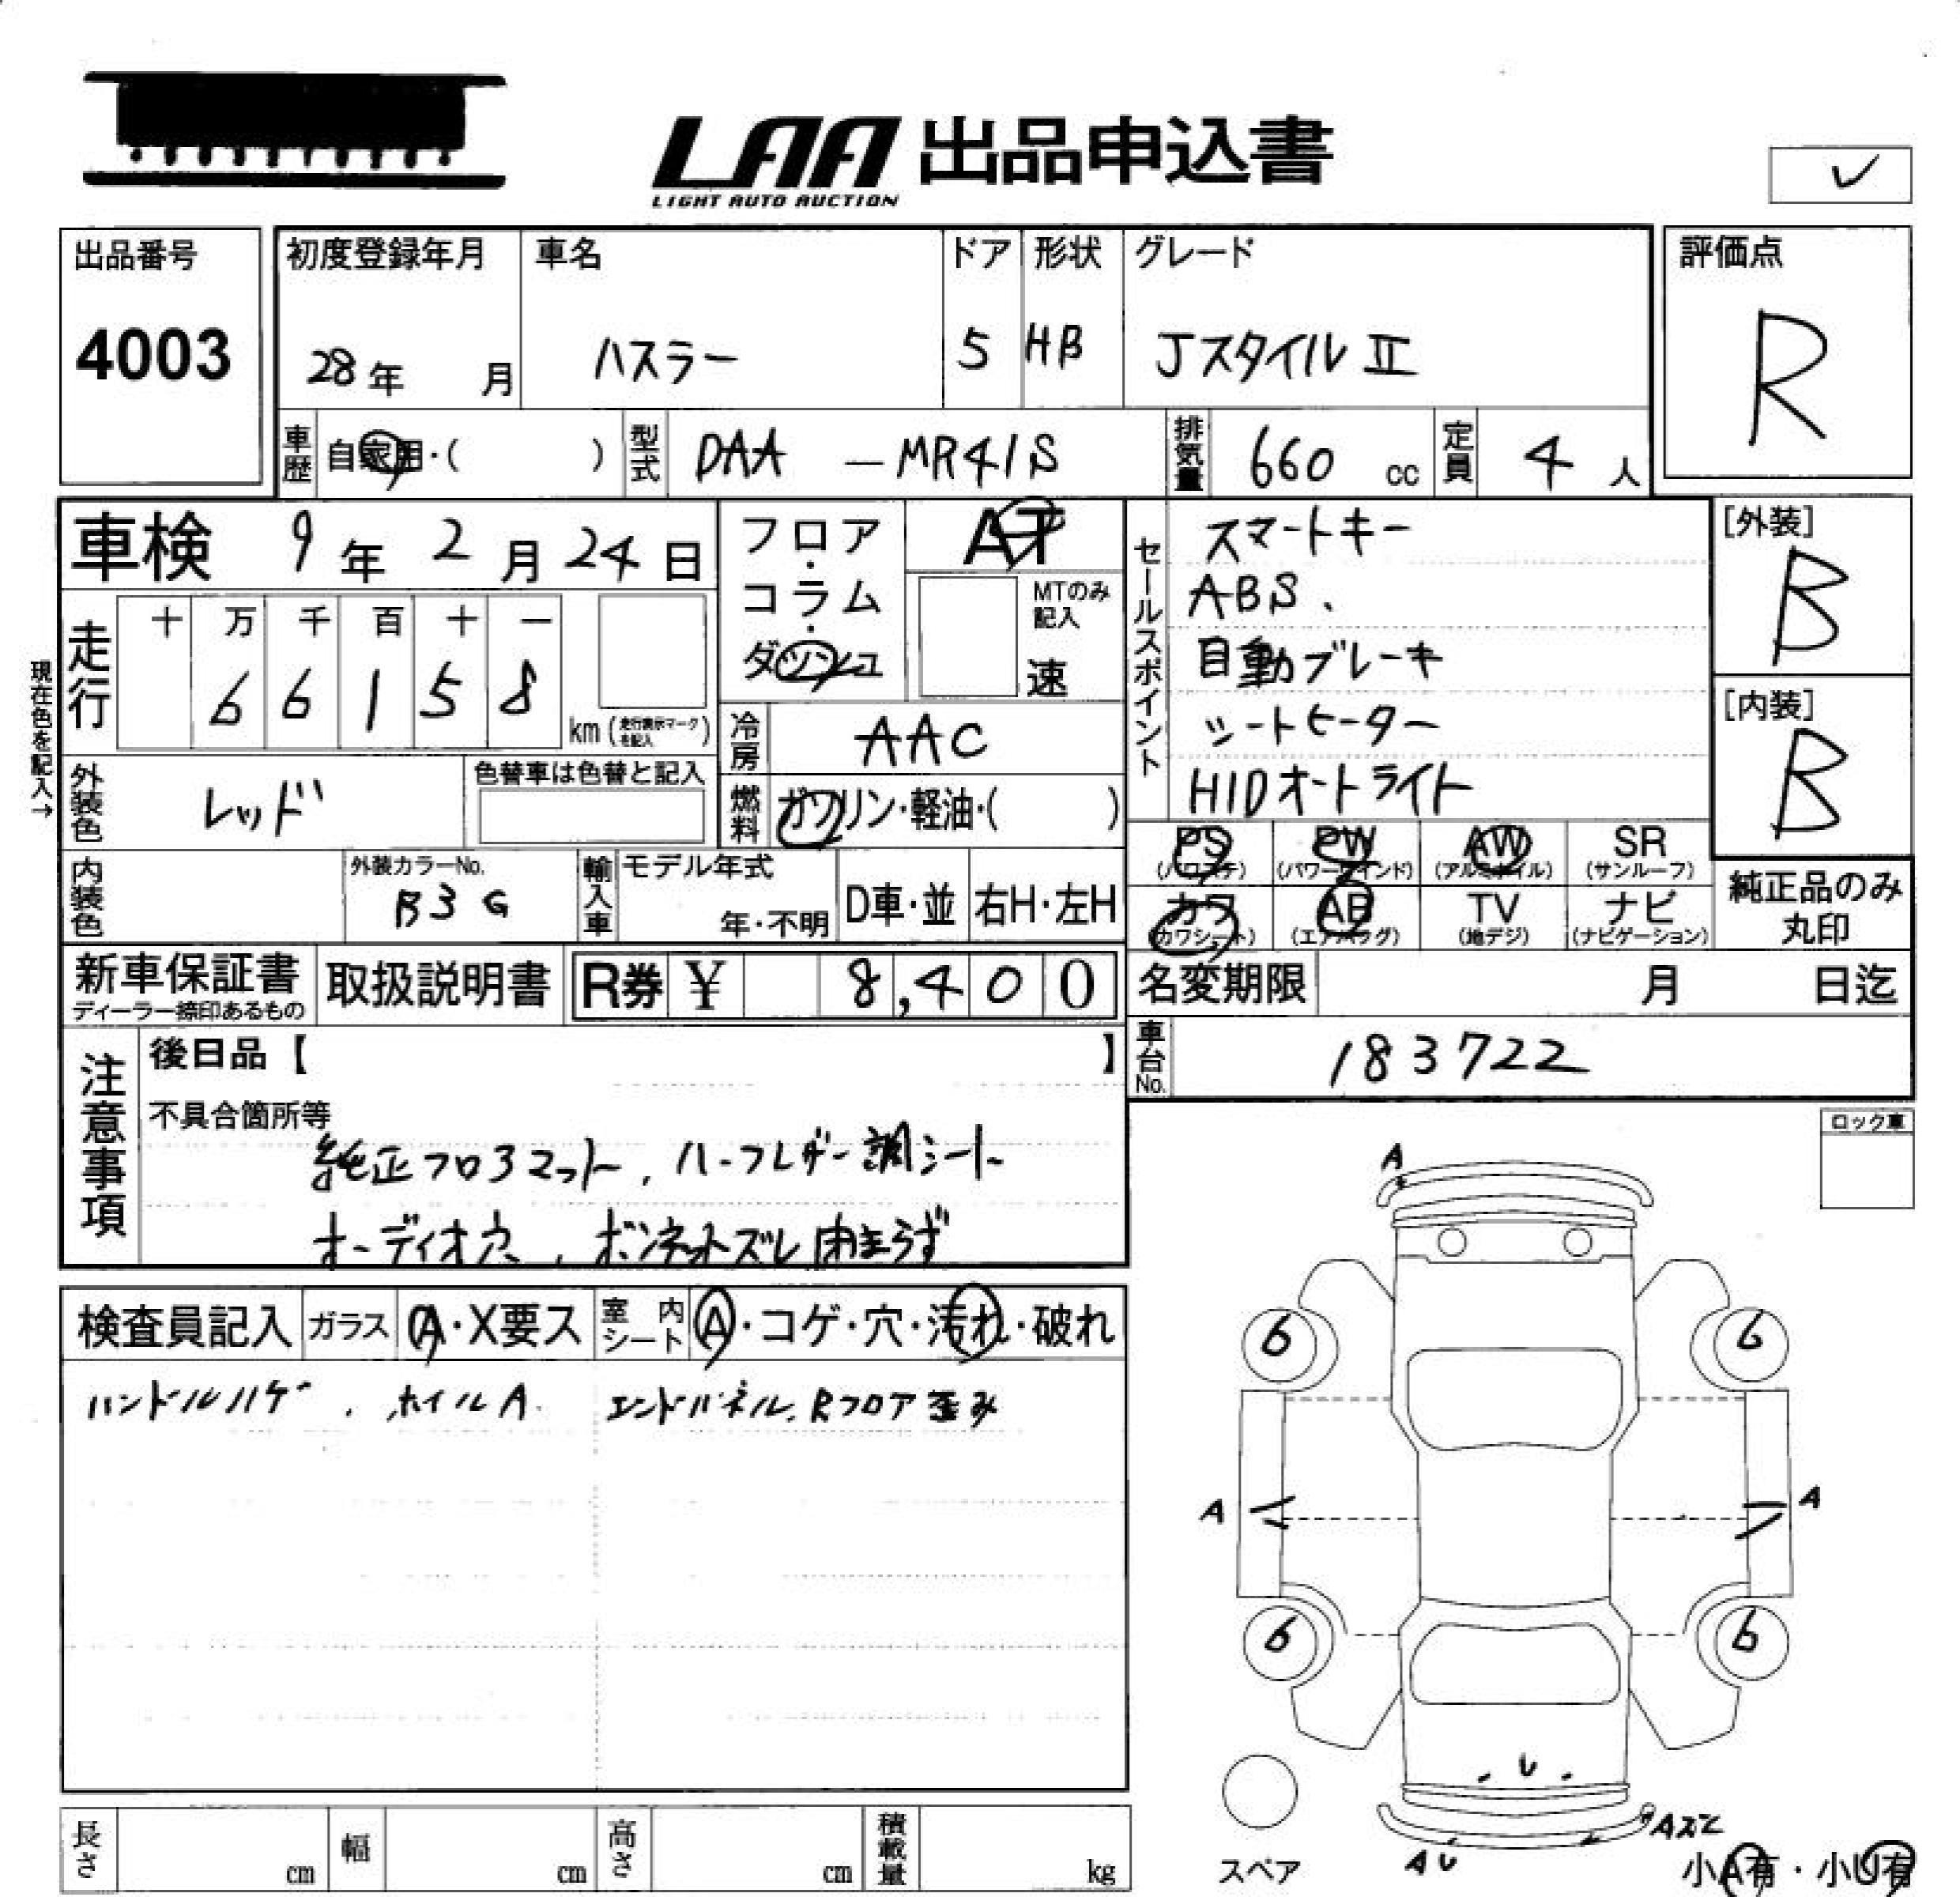 LAA 出品申込書
LIGHT AUTO AUCTION
✓
出品番号
4003
初度登録年月
28年 月
車名
ハスラー
ドア
5
形状
HB
グレード
Jスタイル II
評価点
R
車歴 自家用・( )
型式 DAA — MR41S
排気量 660 cc
定員 4 人
車検 9年 2月 24日
フロア・コラム・ダッシュ
AT
MTのみ記入
速
セールスポイント
スマートキー
ABS、
自動ブレーキ
シートヒーター
HIDオートライト
[外装]
B
[内装]
B
現在色を記入→
走行
十 万 千 百 十 一
6 6 1 5 8
km (走行表示マークを記入)
冷房 AAC
燃料 ガソリン・軽油・( )
外装色 レッド
色替車は色替と記入
内装色
外装カラーNo.
B3G
輸入車 モデル年式
年・不明
D車・並
右H・左H
PS (パワステ)
PW (パワーウインド)
AW (アルミホイル)
SR (サンルーフ)
カワ (カワシート)
AB (エアバッグ)
TV (地デジ)
ナビ (ナビゲーション)
純正品のみ
丸印
新車保証書
ディーラー捺印あるもの
取扱説明書
R券 ¥ 8,400
名変期限 月 日迄
車台No. 183722
注意事項
後日品【 】
不具合箇所等
純正フロアマット、ハーフレザー調シート
オーディオ穴、ボンネットズレ閉まらず
ロック車
検査員記入
ガラス A・X要ス
室内シート A・コゲ・穴・汚れ・破れ
ハンドルハゲ、ホイルA. エンドパネル、Rフロア歪み
A
6 6
A A
6 6
U
Aズレ
AU
スペア
小A有・小U有
長さ cm
幅 cm
高さ cm
積載量 kg